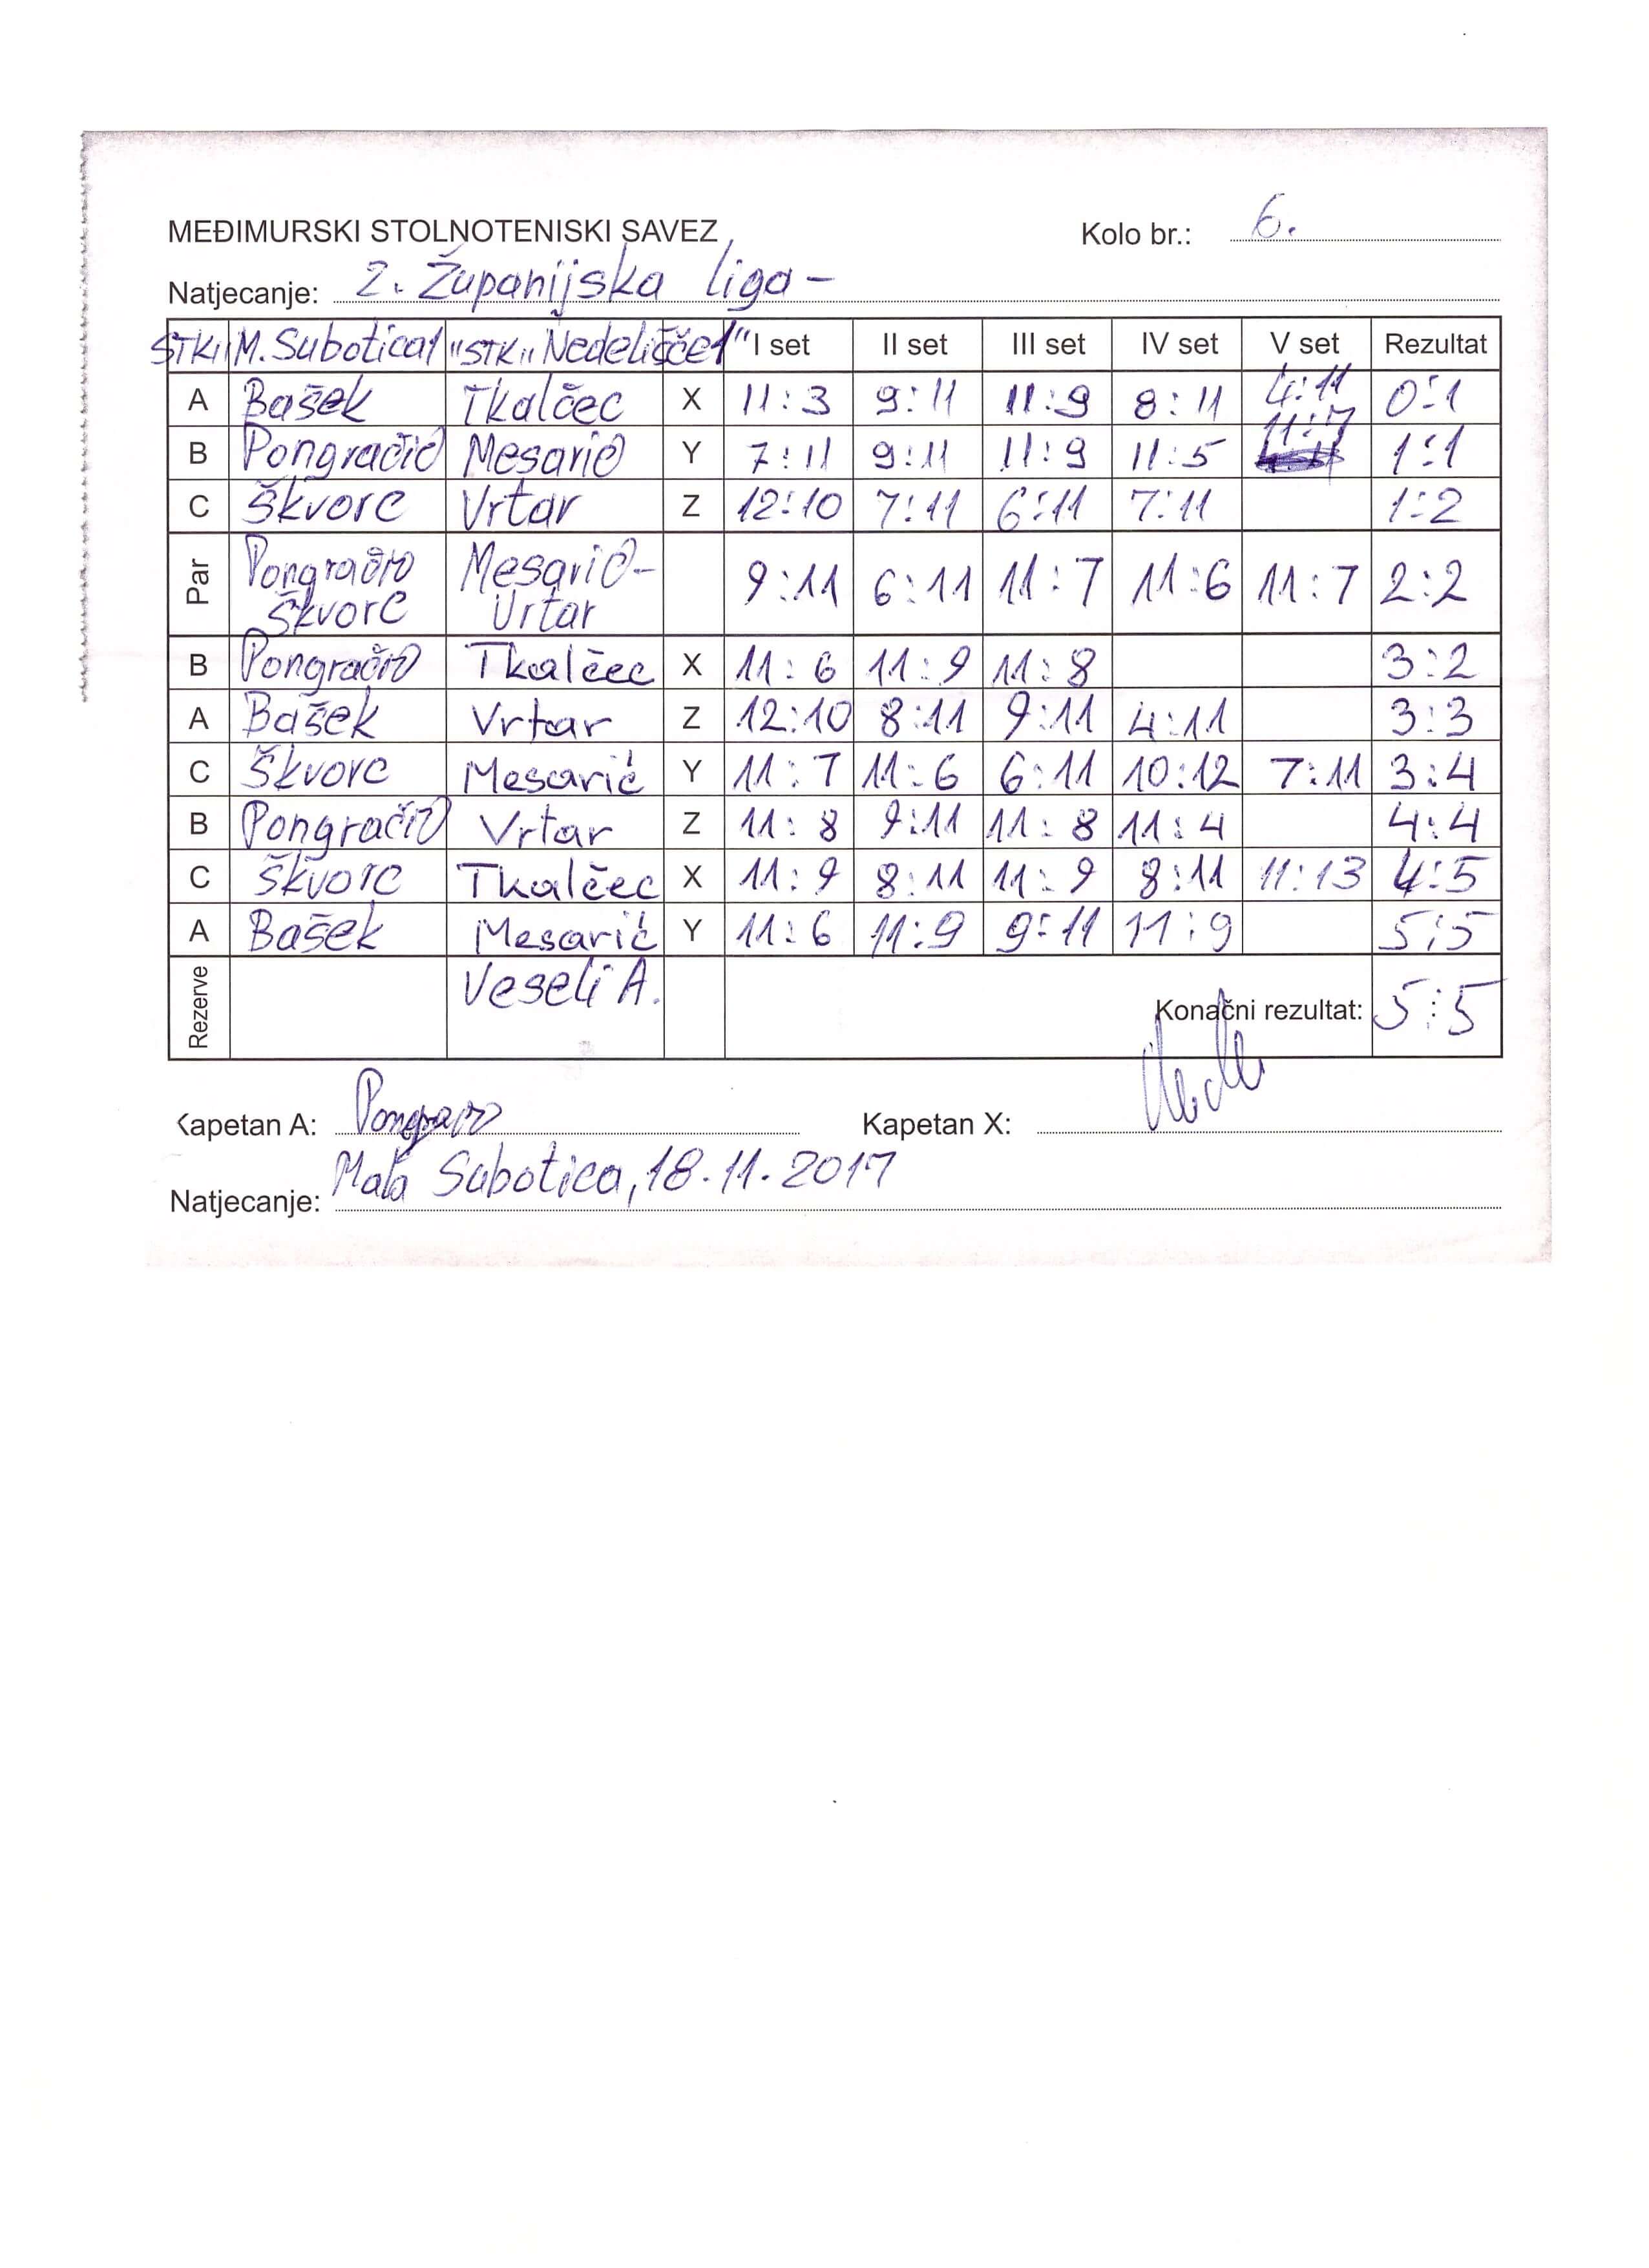 MEĐIMURSKI STOLNOTENISKI SAVEZ
Kolo br.: 6.
Natjecanje: 2. Županijska liga -
STK "M. Subotica" "STK" Nedelišće" I set II set III set IV set V set Rezultat
A Bašek Tkalčec X 11:3 9:11 11:9 8:11 4:11 0:1
B Pongračić Mesarić Y 7:11 9:11 11:9 11:5 11:7 1:1
C Škvorc Vrtar Z 12:10 7:11 6:11 7:11 1:2
Par Pongračić Mesarić- 9:11 6:11 11:7 11:6 11:7 2:2
Škvorc Vrtar
B Pongračić Tkalčec X 11:6 11:9 11:8 3:2
A Bašek Vrtar Z 12:10 8:11 9:11 4:11 3:3
C Škvorc Mesarić Y 11:7 11:6 6:11 10:12 7:11 3:4
B Pongračić Vrtar Z 11:8 9:11 11:8 11:4 4:4
C Škvorc Tkalčec X 11:9 8:11 11:9 8:11 11:13 4:5
A Bašek Mesarić Y 11:6 11:9 9:11 11:9 5:5
Rezerve Veseli A. Konačni rezultat: 5:5
Kapetan A: Kapetan X:
Natjecanje: Mala Subotica, 18.11.2017